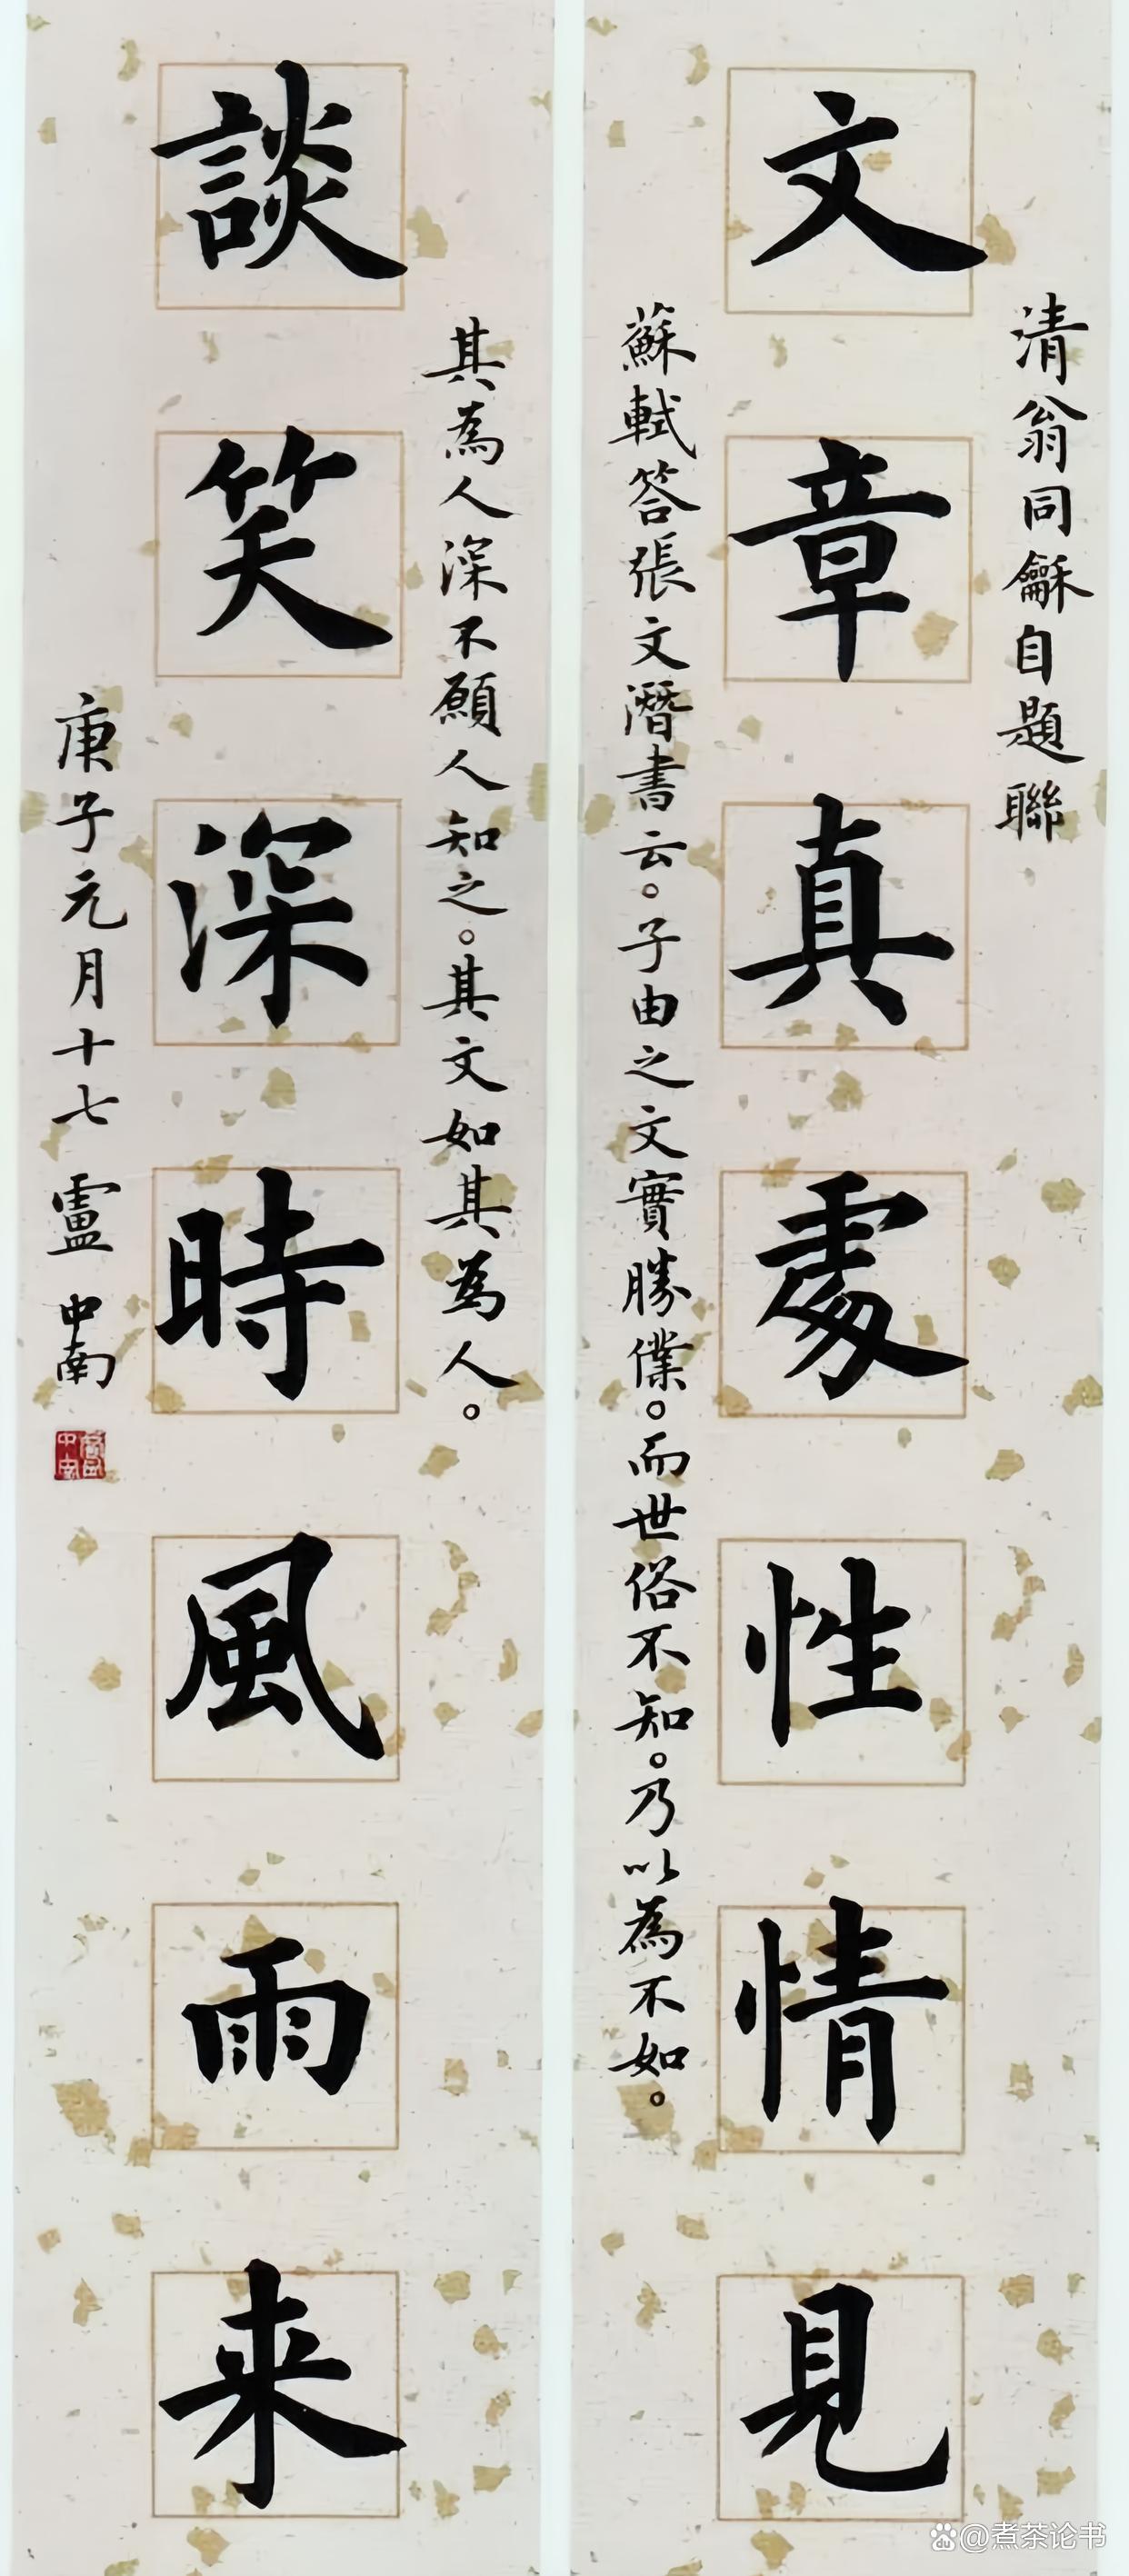 清翁同龢自題聯
文章真處性情見
蘇軾答張文潛書云。子由之文實勝僕。而世俗不知。乃以為不如。
其為人深不願人知之。其文如其為人。
談笑深時風雨来
庚子元月十七 盧中南
盧中南
@煮茶论书